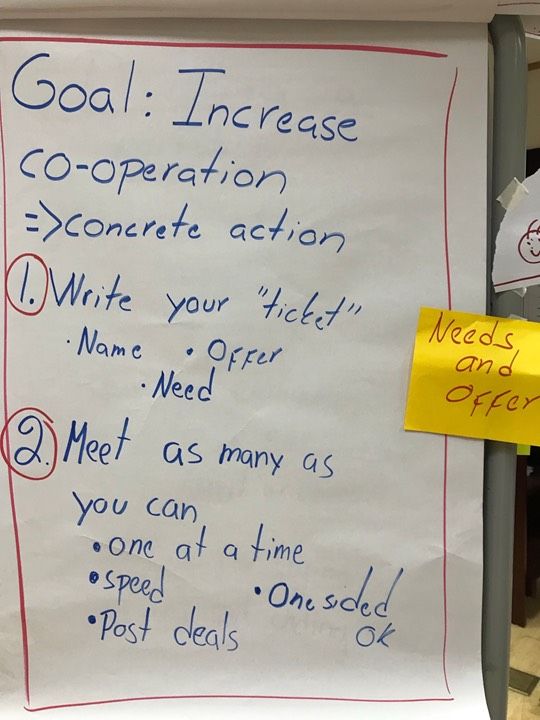 Goal: Increase
co-operation
=>concrete action
1. Write your "ticket"
• Name • Offer
• Need
2. Meet as many as
you can
• one at a time
• speed • One sided
OK
• Post deals
Needs
and
Offer